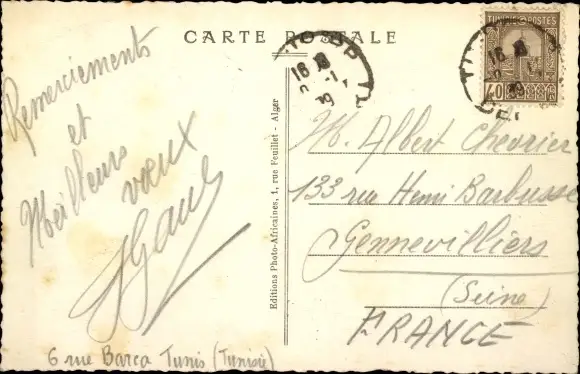 CARTE POSTALE
Remerciements
et
Meilleurs
vœux
6 rue Barca Tunis (Tunisie)
Editions Photo-Africaines, 1, rue Feuillet - Alger
TUNISIE POSTES
40
16
M. Albert Chevrier
133 rue Henri Barbusse
Gennevilliers
(Seine)
FRANCE